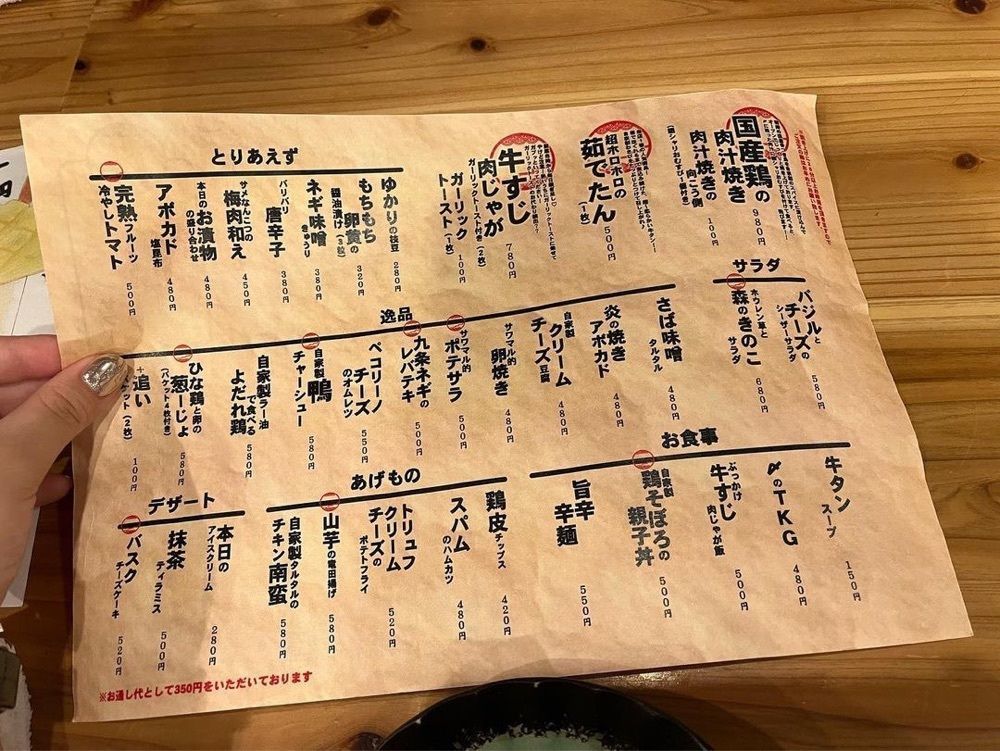 国産鶏の
肉汁焼き
980円
肉汁焼きの
向こう側
100円
超ホロホロの
茹でたん
(1枚)
500円
牛すじ
肉じゃが
ガーリックトースト付き(2枚)
780円
ガーリック
トースト(1枚)
100円
とりあえず
ゆかりの枝豆
280円
もちもち
卵黄の
醤油漬け(3粒)
320円
ネギ味噌
きゅうり
380円
パリパリ
唐辛子
380円
サメなんこつの
梅肉和え
450円
本日の
お漬物
の盛り合わせ
480円
アボカド
塩昆布
480円
完熟フルーツ
冷やしトマト
500円
サラダ
バジルと
チーズの
シーザーサラダ
580円
ホウレン草と
森のきのこ
サラダ
680円
逸品
さば味噌
タルタル
480円
炎の焼き
アボカド
480円
自家製
クリーム
チーズ豆腐
480円
サワマル的
卵焼き
480円
サワマル的
ポテサラ
500円
九条ネギの
レバテキ
500円
ペコリーノ
チーズ
のオムレツ
550円
自家製
鴨
チャーシュー
580円
自家製ラー油
で食べる
よだれ鶏
580円
ひな鶏と卵の
葱ーじょ
(バケット4枚付き)
580円
+追い
ケット(2枚)
100円
お食事
牛タン
スープ
150円
〆のTKG
480円
ぶっかけ
牛すじ
肉じゃが飯
500円
自家製
鶏そぼろの
親子丼
500円
旨辛
辛麺
550円
あげもの
鶏皮チップス
420円
スパム
のハムカツ
480円
トリュフ
クリーム
チーズの
ポテトフライ
520円
山芋の竜田揚げ
580円
自家製タルタルの
チキン南蛮
580円
デザート
本日の
アイスクリーム
280円
抹茶
ティラミス
500円
バスク
チーズケーキ
520円
※お通し代として350円をいただいております